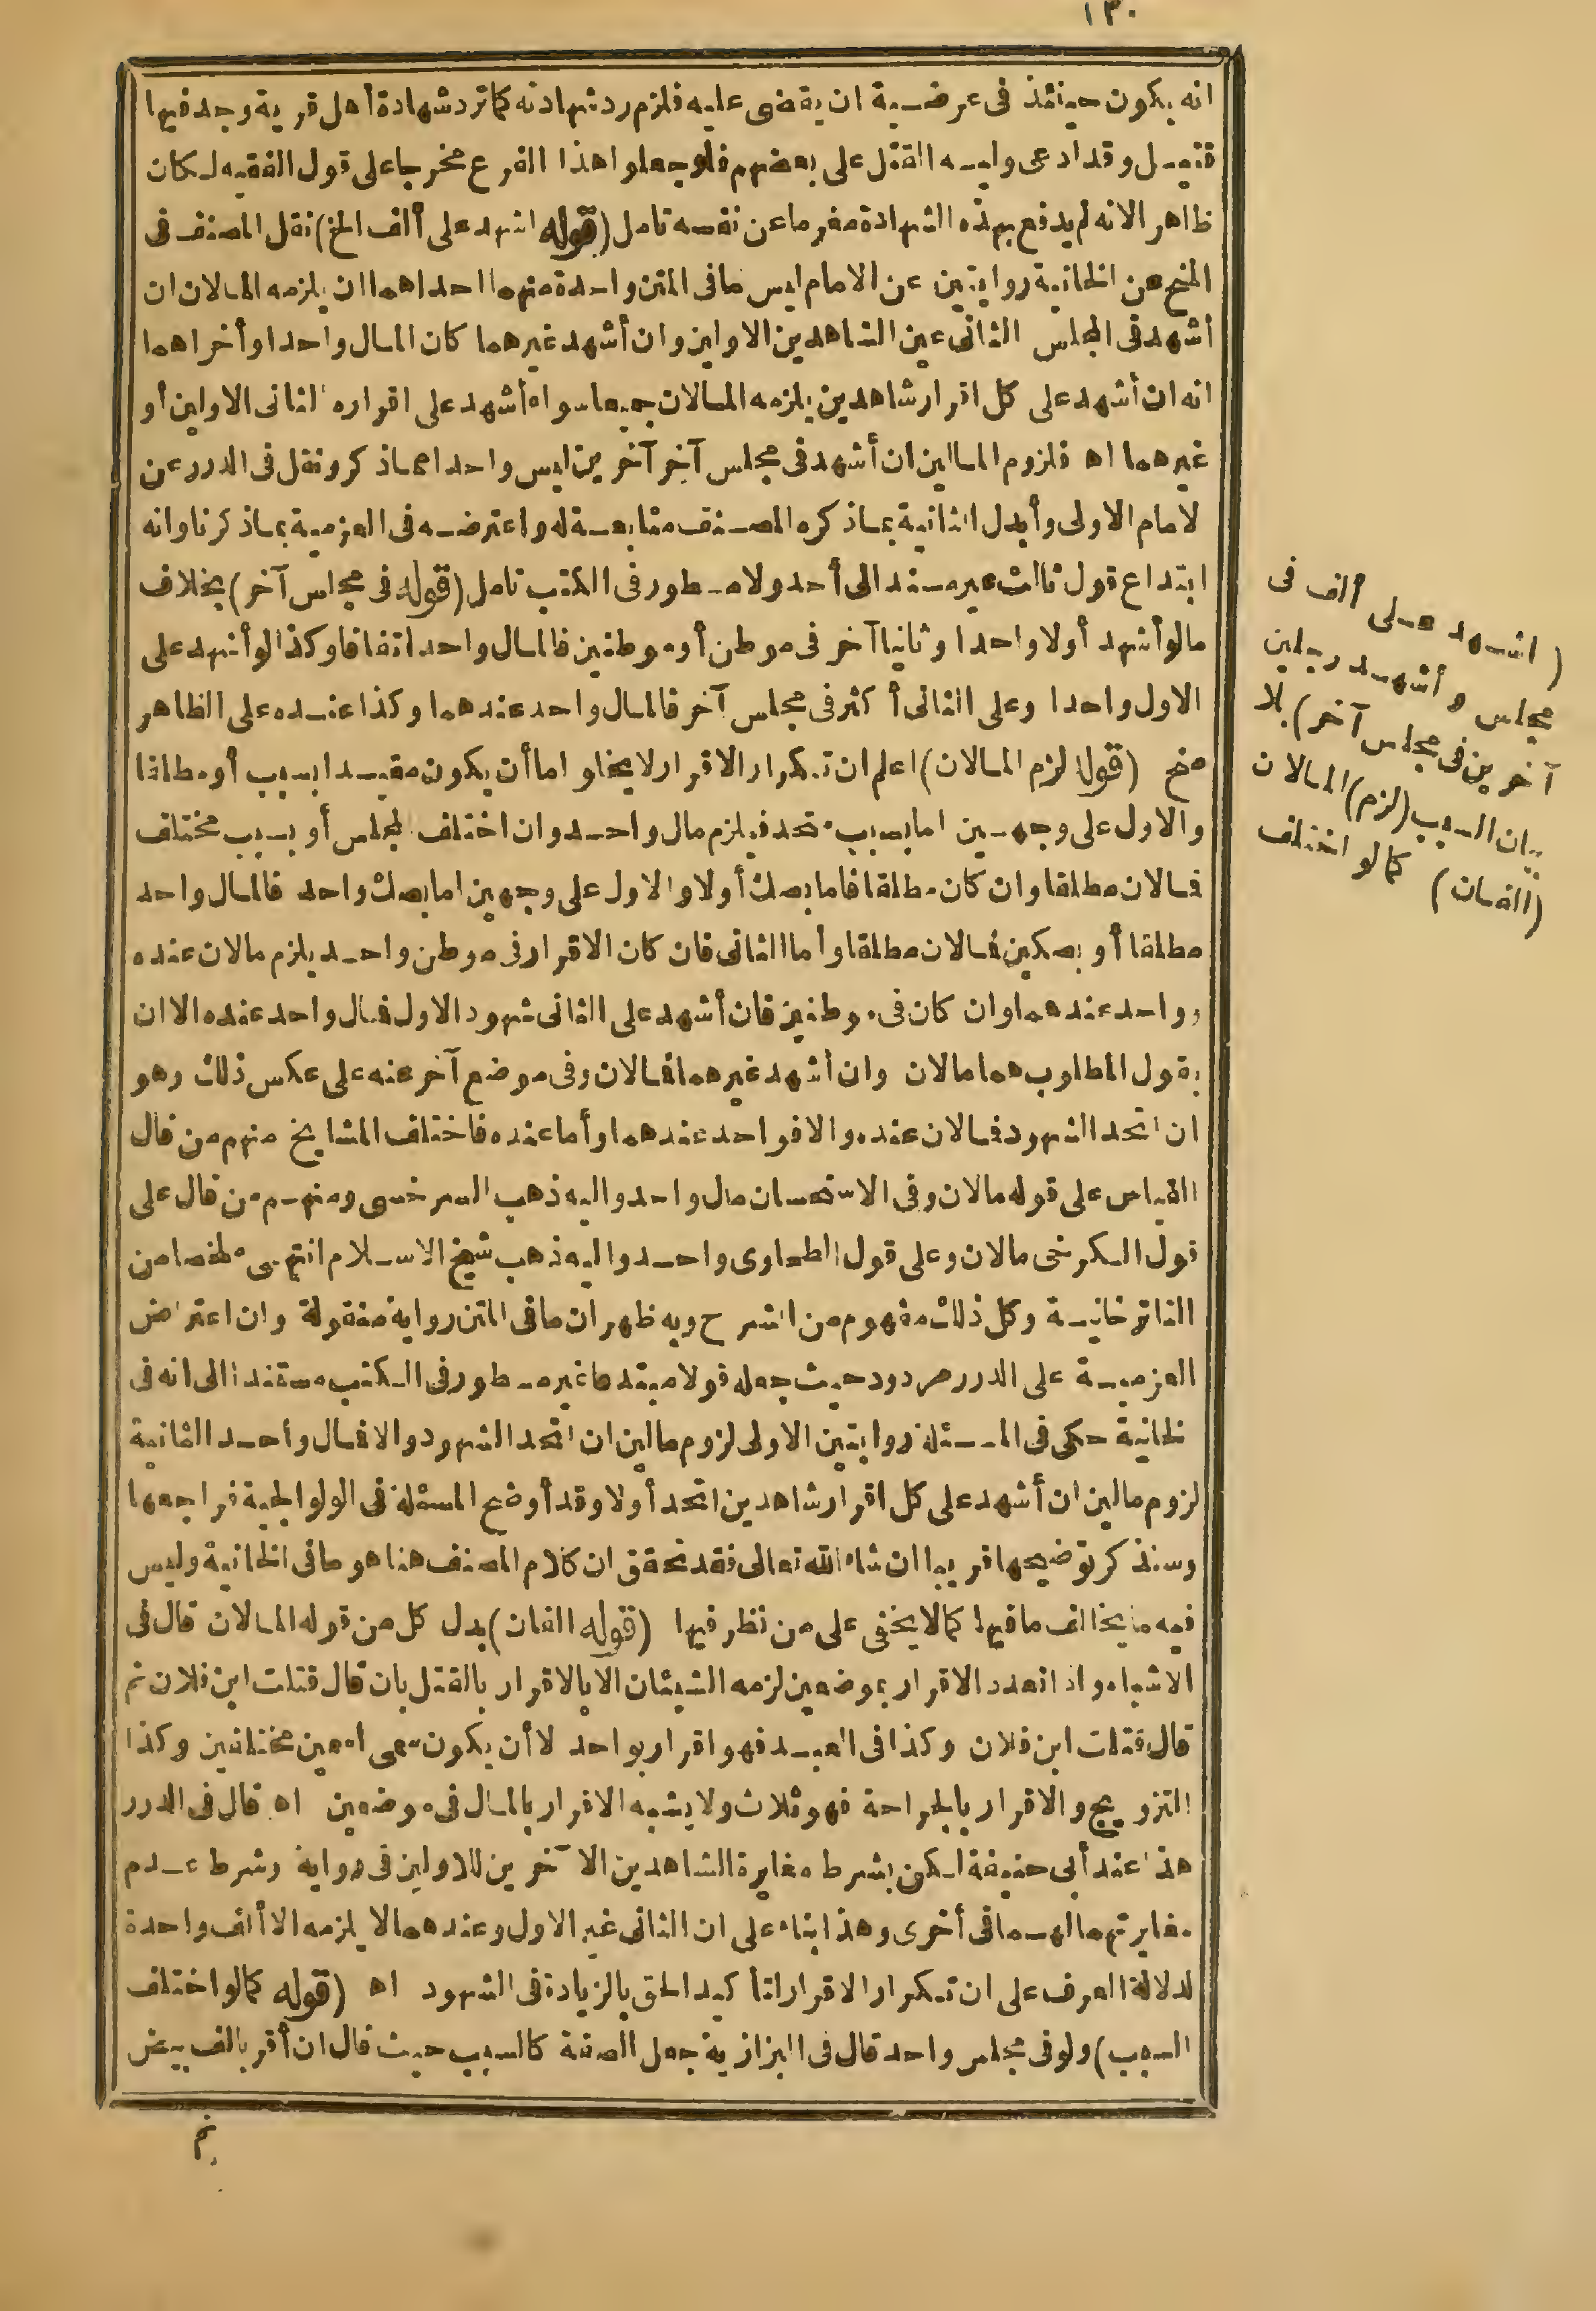 ١٣٠
انه يكون حينئذ فى عرضية ان يقضى عليه فلزم رد شهادته كما ترد شهادة أهل قرية وجد فيها
قتيل وقد ادعى وليه القتل على بعضهم فلو جعلوا هذا الفرع مخرجا على قول الفقيه لكان
ظاهر الانه لم يدفع بهذه الشهادة مغرما عن نفسه تامل (قوله اشهد على ألف الخ) نقل المصنف فى
المنح عن الخانية روايتين عن الامام ليس ما فى المتن واحدة منهما احداهما ان يلزمه المالان ان
أشهد فى المجلس الثانى عين الشاهدين الاولين وان أشهد غيرهما كان المال واحدا وأخراهما
انه ان أشهد على كل اقرار شاهدين يلزمه المالان جميعا سواء أشهد على اقراره الثانى الاولين أو
غيرهما اه فلزوم المالين ان أشهد فى مجلس آخر آخرين ليس واحدا مما ذكر ونقل فى الدرر عن
لامام الاولى وأبدل الثانية بما ذكره المصنف متابعة له واعترضه فى العزمية بما ذكرنا وانه
ابتداع قول ثالث غير مسند الى أحد ولا مسطور فى الكتب تامل (قوله فى مجلس آخر) بخلاف
مالو أشهد أولا واحدا وثانيا آخر فى موطن أو موطنين فالمال واحد اتفاقا وكذا لو أشهد على
الاول واحدا وعلى الثانى أكثر فى مجلس آخر فالمال واحد عندهما وكذا عنده على الظاهر
منح (قوله لزم المالان) اعلم ان تكرار الاقرار لا يخلو اما أن يكون مقيدا بسبب أو مطلقا
والاول على وجهين اما بسبب متحد فيلزم مال واحد وان اختلف المجلس أو بسبب مختلف
فمالان مطلقا وان كان مطلقا فاما بصك أولا والاول على وجهين اما بصك واحد فالمال واحد
مطلقا أو بصكين فمالان مطلقا وأما الثانى فان كان الاقرار فى موطن واحد يلزم مالان عنده
وواحد عندهما وان كان فى موطنين فان أشهد على الثانى شهود الاول فمال واحد عنده الا ان
يقول المطلوب هما مالان وان أشهد غيرهما فمالان وفى موضع آخر عنه على عكس ذلك وهو
ان اتحد الشهود فمالان عنده والا فواحد عندهما وأما عنده فاختلف المشايخ منهم من قال
القياس على قوله مالان وفى الاستحسان مال واحد واليه ذهب السرخسى ومنهم من قال على
قول الكرخى مالان وعلى قول الطحاوى واحد واليه ذهب شيخ الاسلام انتهى ملخصا من
التاترخانية وكل ذلك مفهوم من الشرح وبه ظهر ان ما فى المتن رواية منقولة وان اعتراض
العزمية على الدرر مردود حيث جعله قولا مبتدعا غير مسطور فى الكتب مستندا الى انه فى
لخانية حكى فى المسئلة روايتين الاولى لزوم مالين ان اتحد الشهود والا فمال واحد الثانية
لزوم مالين ان أشهد على كل اقرار شاهدين اتحد أولا وقد أوضح المسئلة فى الولوالجية فراجعها
وسنذكر توضيحها قريبا ان شاء الله تعالى فقد تحقق ان كلام المصنف هنا هو ما فى الخانية وليس
فيه ما يخالف ما فيها كما لا يخفى على من نظر فيها (قوله الفان) بدل كل من قوله المالان قال فى
الاشباه واذا تعدد الاقرار بموضعين لزمه الشيئان الا بالاقرار بالقتل بان قال قتلت ابن فلان ثم
قال قتلت ابن فلان وكذا فى العبد فهو اقرار بواحد لا أن يكون سمى اسمين مختلفين وكذا
التزويج والاقرار بالجراحة فهو ثلاث ولا يشبه الاقرار بالمال فى موضعين اه قال فى الدرر
هذا عند أبى حنيفة لكن بشرط مغايرة الشاهدين الآخرين للاولين فى رواية وشرط عدم
مغايرتهما لهما فى أخرى وهذا بناء على ان الثانى غير الاول وعندهما لا يلزمه الا ألف واحدة
لدلالة العرف على ان تكرار الاقرار لتأكيد الحق بالزيادة فى الشهود اه (قوله كما لو اختلف
السبب) ولو فى مجلس واحد قال فى البزازية جعل الصفة كالسبب حيث قال ان أقر بالف بيض
(اشهد على ألف فى
مجلس وأشهد رجلين
آخرين فى مجلس آخر) بلا
بيان السبب (لزم) المالان
(الفان) كما لو اختلف
ثم